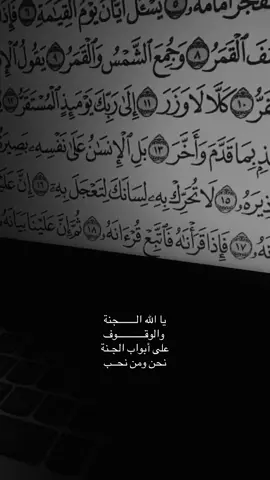 ليفجر أمامه ۝٥ يسـٔل أيان يوم القيـٰمة ۝٦ فإ
ـف ٱلقمر ۝٨ وجمع ٱلشمس وٱلقمر ۝٩ يقول ٱلإ
ـفر ۝١٠ كلا لا وزر ۝١١ إلىٰ ربك يومئذ ٱلمستقر ۝١٢
ـذ بما قدم وأخر ۝١٣ بل ٱلإنسـٰن علىٰ نفسهۦ بصيرة
ـذيرهۥ ۝١٥ لا تحرك بهۦ لسانك لتعجل بهۦ ۝١٦ إن علـ
ـهۥ ۝١٧ فإذا قرأنـٰه فٱتبع قرءانهۥ ۝١٨ ثم إن علينا بيانهۥ
يا الله الــــــجنة
والوقـــــــــوف
على أبواب الجنة
نحن ومن نحــب